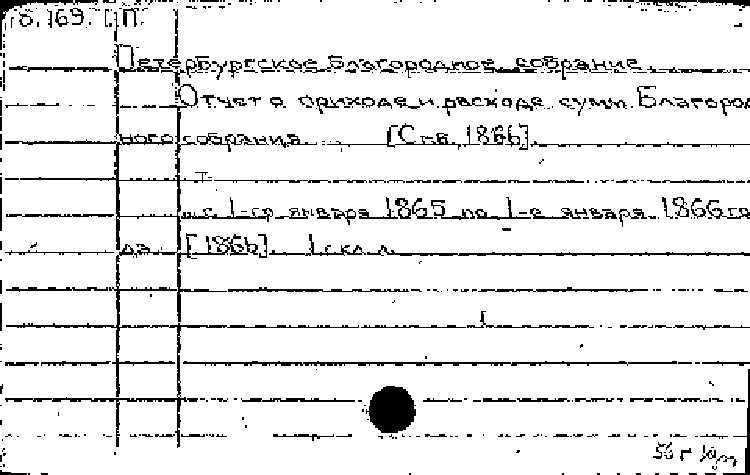 б. 169. П.
Петербургское Благородное собрание.
Отчет о приходе и расходе сумм Благород
ного собрания. ... [Спб. 1866].
... с 1-го января 1865 по 1-е января 1866 го
да. [1866]. 1 скл. л.
56 г